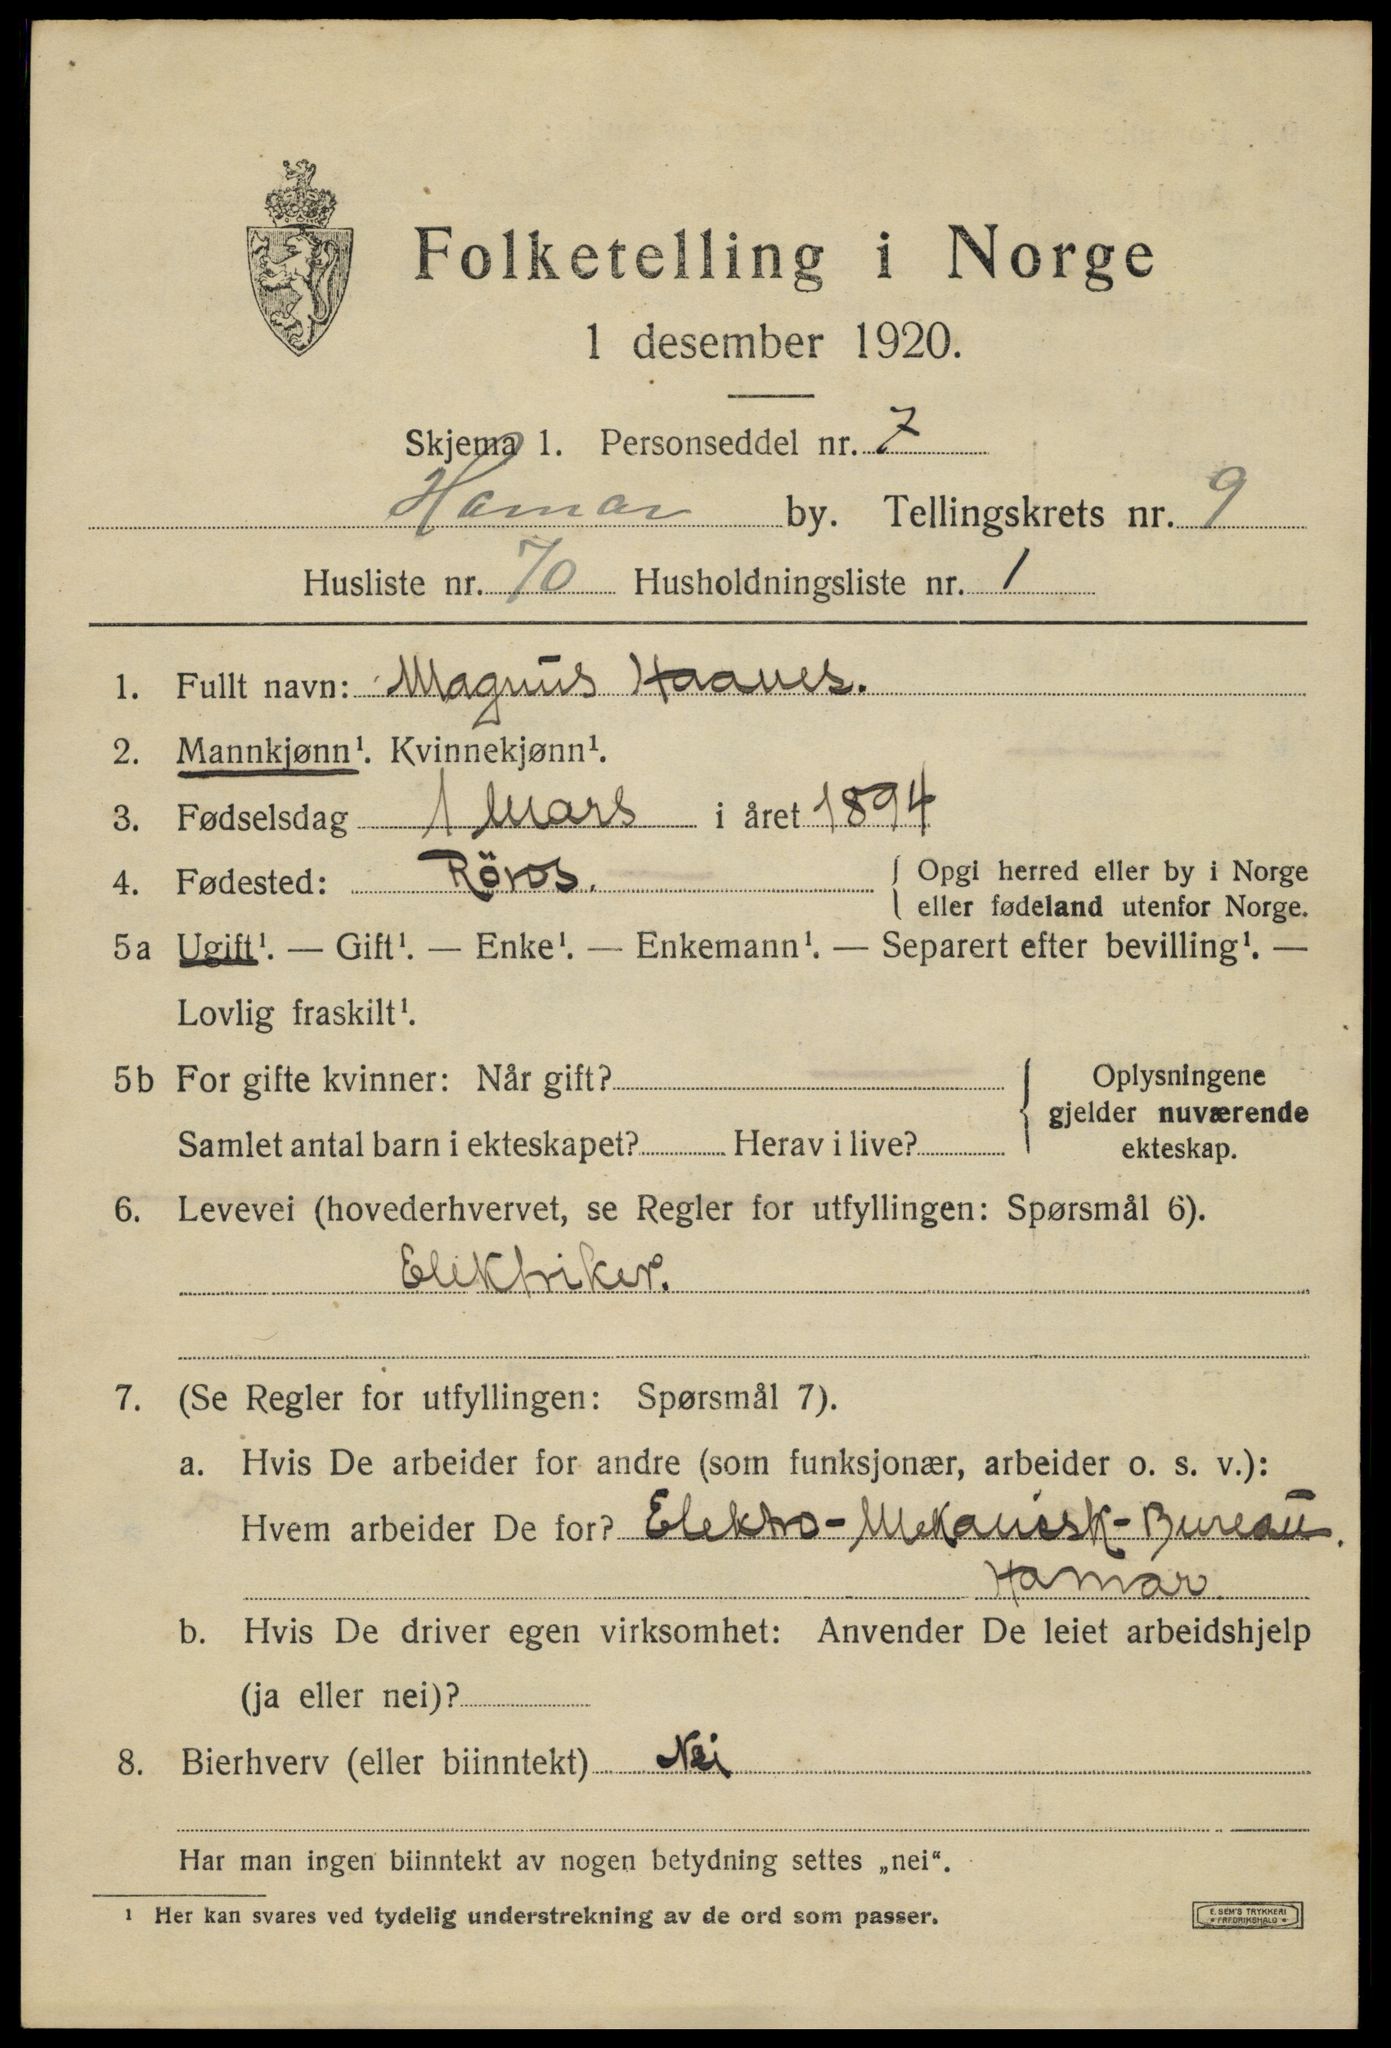 Folketelling i Norge
1 desember 1920.
Skjema 1. Personseddel nr. 7
Hamar by. Tellingskrets nr. 9
Husliste nr. 70 Husholdningsliste nr. 1
1. Fullt navn: Magnus Haanes.
2. Mannkjønn¹. Kvinnekjønn¹.
3. Fødselsdag 1 Mars i året 1894
4. Fødested: Röros. { Opgi herred eller by i Norge
eller fødeland utenfor Norge.
5a Ugift¹. — Gift¹. — Enke¹. — Enkemann¹. — Separert efter bevilling¹. —
Lovlig fraskilt¹.
5b For gifte kvinner: Når gift? { Oplysningene
gjelder nuværende
Samlet antal barn i ekteskapet? Herav i live? ekteskap.
6. Levevei (hovederhvervet, se Regler for utfyllingen: Spørsmål 6).
Elektriker.
7. (Se Regler for utfyllingen: Spørsmål 7).
a. Hvis De arbeider for andre (som funksjonær, arbeider o. s. v.):
Hvem arbeider De for? Elektro-Mekanisk-Bureau.
Hamar.
b. Hvis De driver egen virksomhet: Anvender De leiet arbeidshjelp
(ja eller nei)?
8. Bierhverv (eller biinntekt) Nei
Har man ingen biinntekt av nogen betydning settes „nei“.
¹ Her kan svares ved tydelig understrekning av de ord som passer.
E. SEM'S TRYKKERI
FREDRIKSHALD